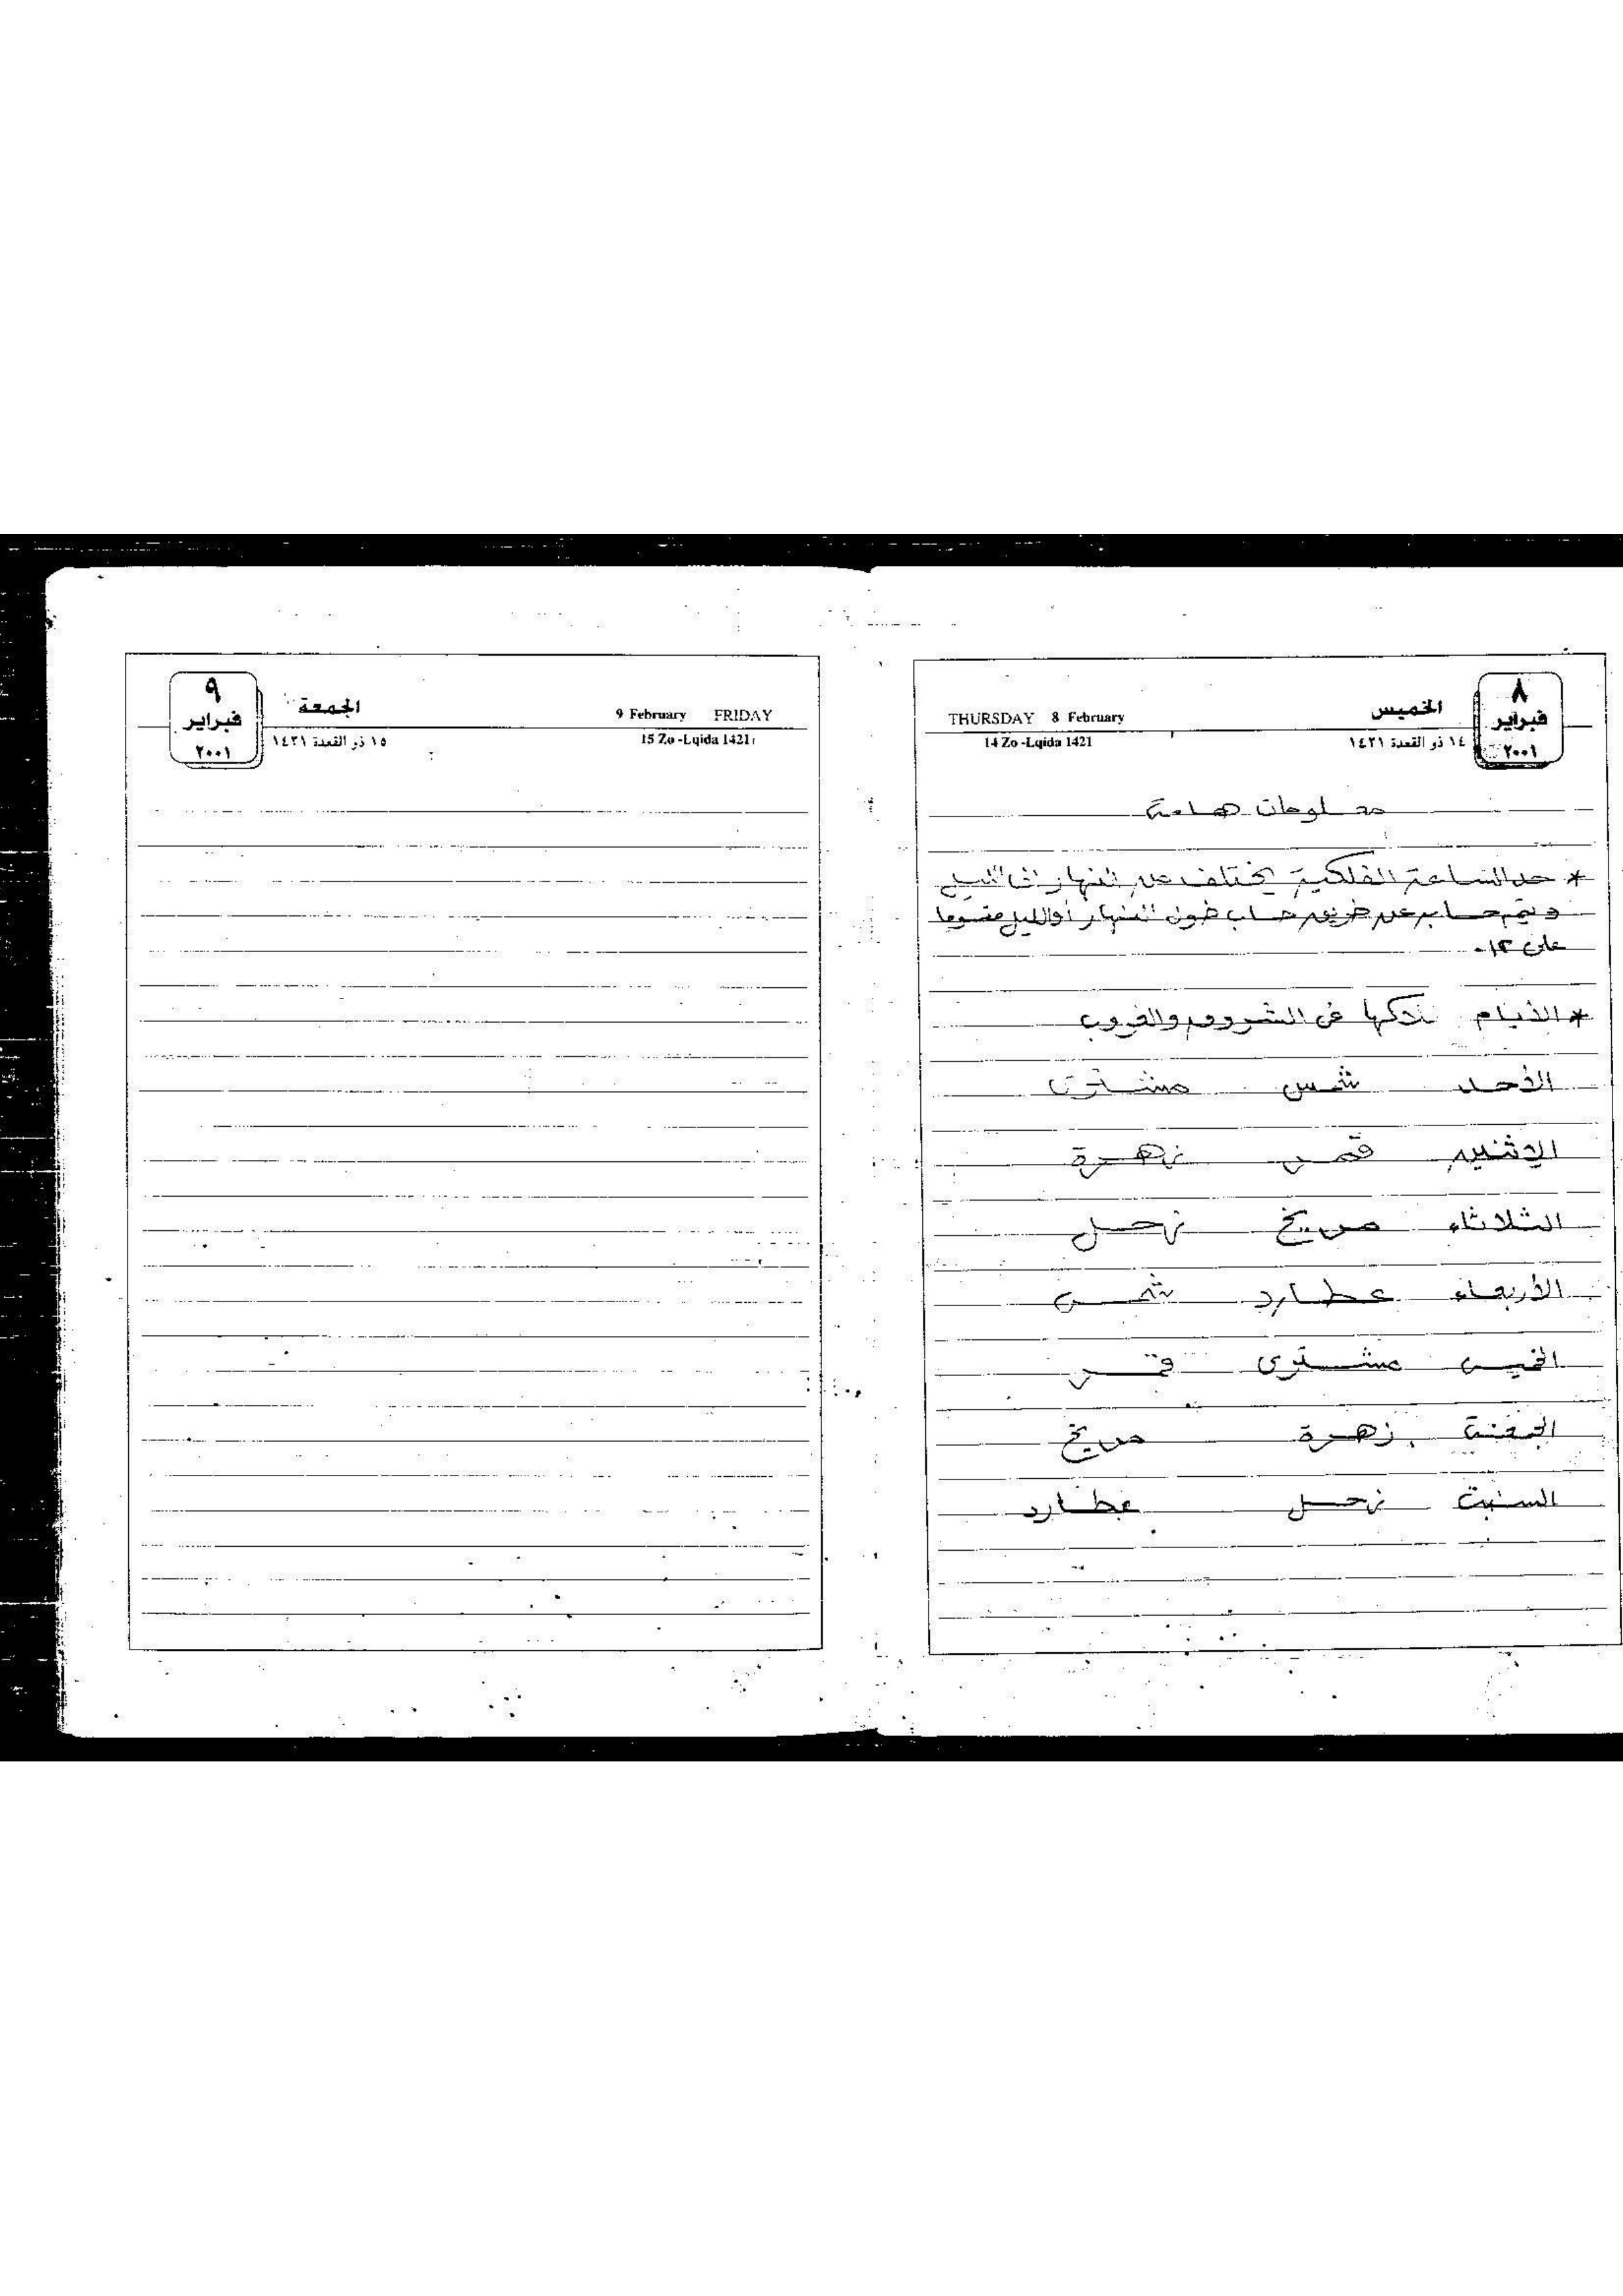 ٨
فبراير
٢٠٠١
الخميس
THURSDAY 8 February
١٤ ذو القعدة ١٤٢١
14 Zo -Lqida 1421
معلومات هامة
* حد الساعة الفلكية يختلف عن النهار الليل
ويتم حسابه عن طريق حساب طول النهار أو الليل مقسوما
على ١٢.
* الأيام في الشروق والغروب
الأحد شمس مشترى
الإثنين قمر زهرة
الثلاثاء مريخ زحل
الأربعاء عطارد شمس
الخميس مشترى قمر
الجمعة زهرة مريخ
السبت زحل عطارد
٩
فبراير
٢٠٠١
الجمعة
9 February FRIDAY
١٥ ذو القعدة ١٤٢١
15 Zo -Lqida 1421